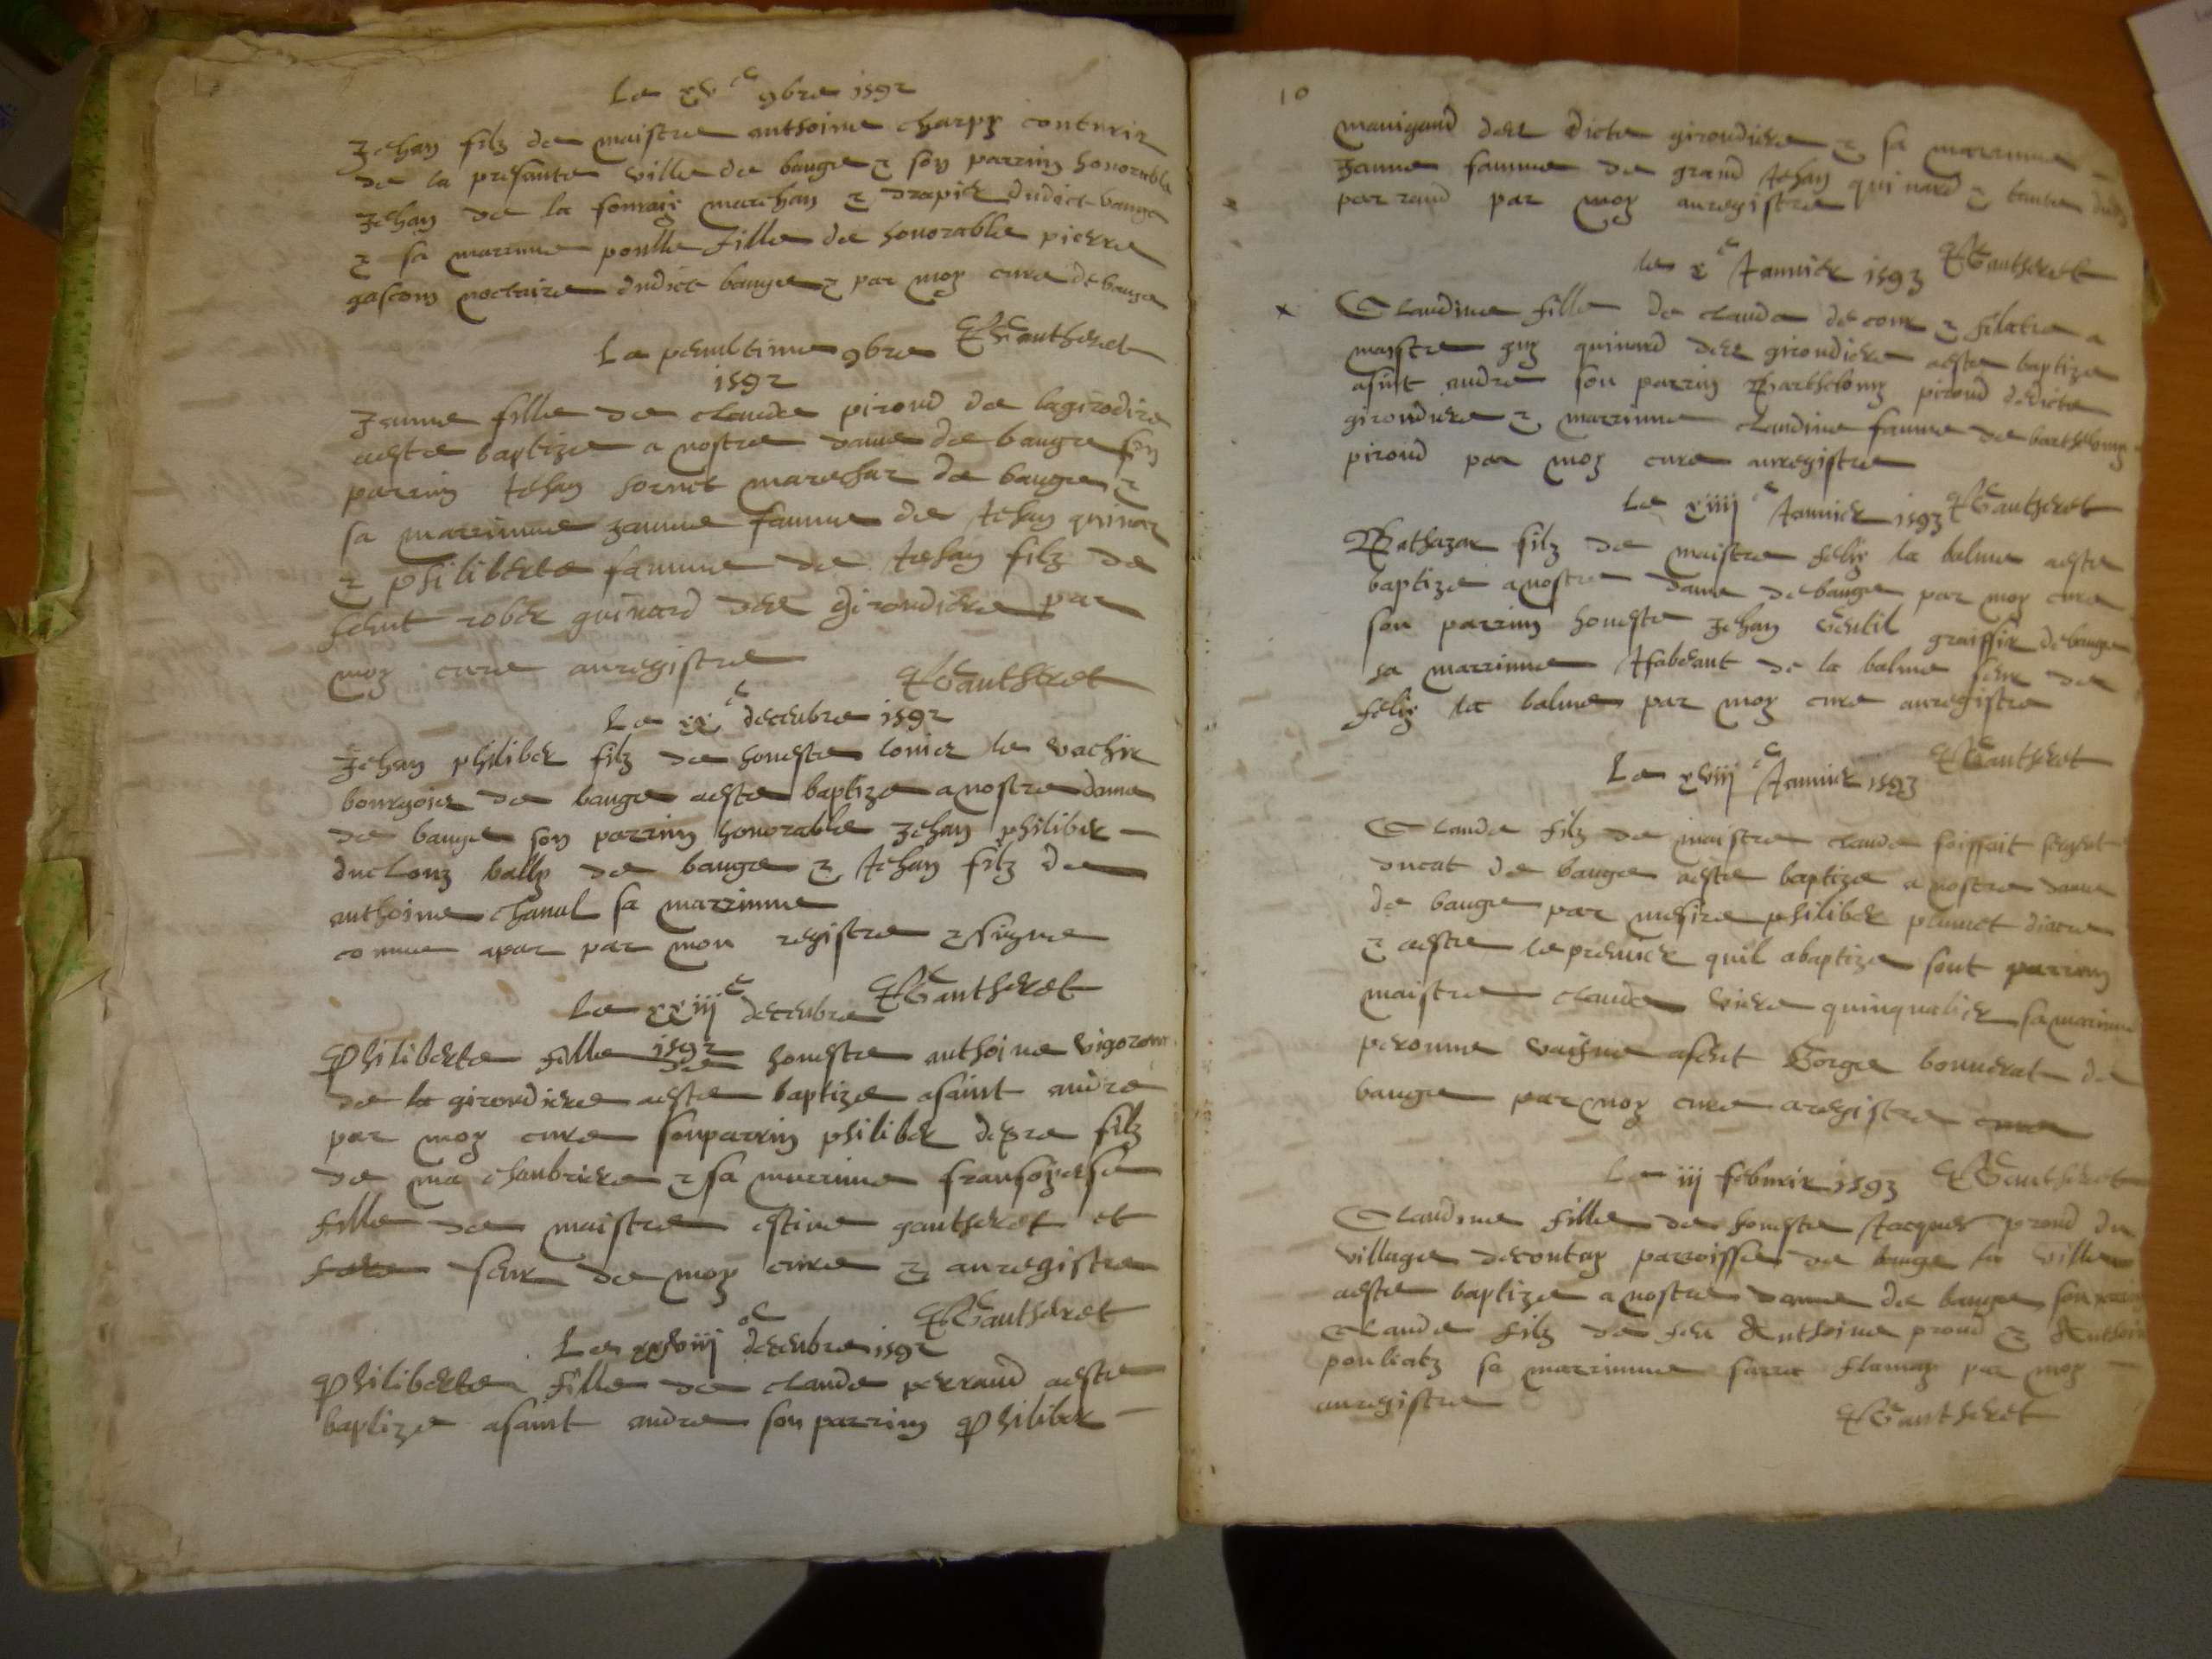 Le xv e 9bre 1592
Jehan filz de maistre anthoine charpy
de la presante ville de bauge & son parrin honorable
Jehan de la marchan & drapier dudict bauge
& sa marrinne fille de honorable pierre
gascon noctaire dudict bauge & par moy cure de bauge
Gautheret
Le penultime 9bre
1592
Janne fille de claude piroud de lagirodire
aeste baptize a nostre dame de bauge son
parrin Jehan hornet mareschar de bauge &
sa marrinne Janne famme de Jehan quinar
& philiberte famme de Jehan filz de
rober quinard dele girondiere par
moy cure anregistre
Gautheret
Le xx e decenbre 1592
Jehan philiber filz de honeste le vachir
bourgois de bauge aeste baptize a nostre dame
de bauge son parrin honorable Jehan philiber
duclouz bally de bauge & Jehan filz de
anthoine chanal sa marrinne
comme apar par mon registre & signe
Gautheret
Le xxiij e decenbre
1592
Philiberte fille de honeste anthoine
de la girondiere aeste baptize asaint andre
par moy cure sonparrin philiber filz
de ma chanbriere & sa marrine
fille de maistre estine gautheret et
seur de moy cure & anregistre
Gautheret
Le xxviij e decenbre 1592
Philiberte fille de claude perraud aeste
baptize asaint andre son parrin Philiber
10
manigand dele dicte girondiere & sa marrinne
Janne famme de grand Jehan quinard & tante dud
perraud par moy anregistre
Gautheret
le x e Janvier 1593
x Claudine fille de claude & filatre a
maistre guy quinard dele girondiere aeste baptize
asint andre son parrin Barthelomy piroud dedicte
girondiere & marrinne claudine famme de barthelomy
piroud par moy cure anregistre
Gautheret
Le xiiij e Janvier 1593
Bathazar filz de maistre felix la balme aeste
baptize a nostre dame de bauge par moy cure
son parrin honeste Jehan graiffier de bauge
sa marrinne de la balme seur de
felix la balme par moy cure anregistre
Gautheret
Le xviij e Janvier 1593
Claude filz de maistre claude
ducat de bauge aeste baptize a nostre dame
de bauge par mesire philiber plumet diacre
& aeste le premier quil abaptize sont parrin
maistre claude quinqualier sa marinne
peronne bonnerat de
bauge par moy cure aregistre
Gautheret
Le iij febvrir 1593
Claudine fille de honeste Jacques proud du
village parroisse de bauge la ville
aeste baptize a nostre dame de bauge son parrin
Claude filz de feu Anthoine proud & Anthoine
sa marrinne sarra flamay par moy
anregistre
Gautheret